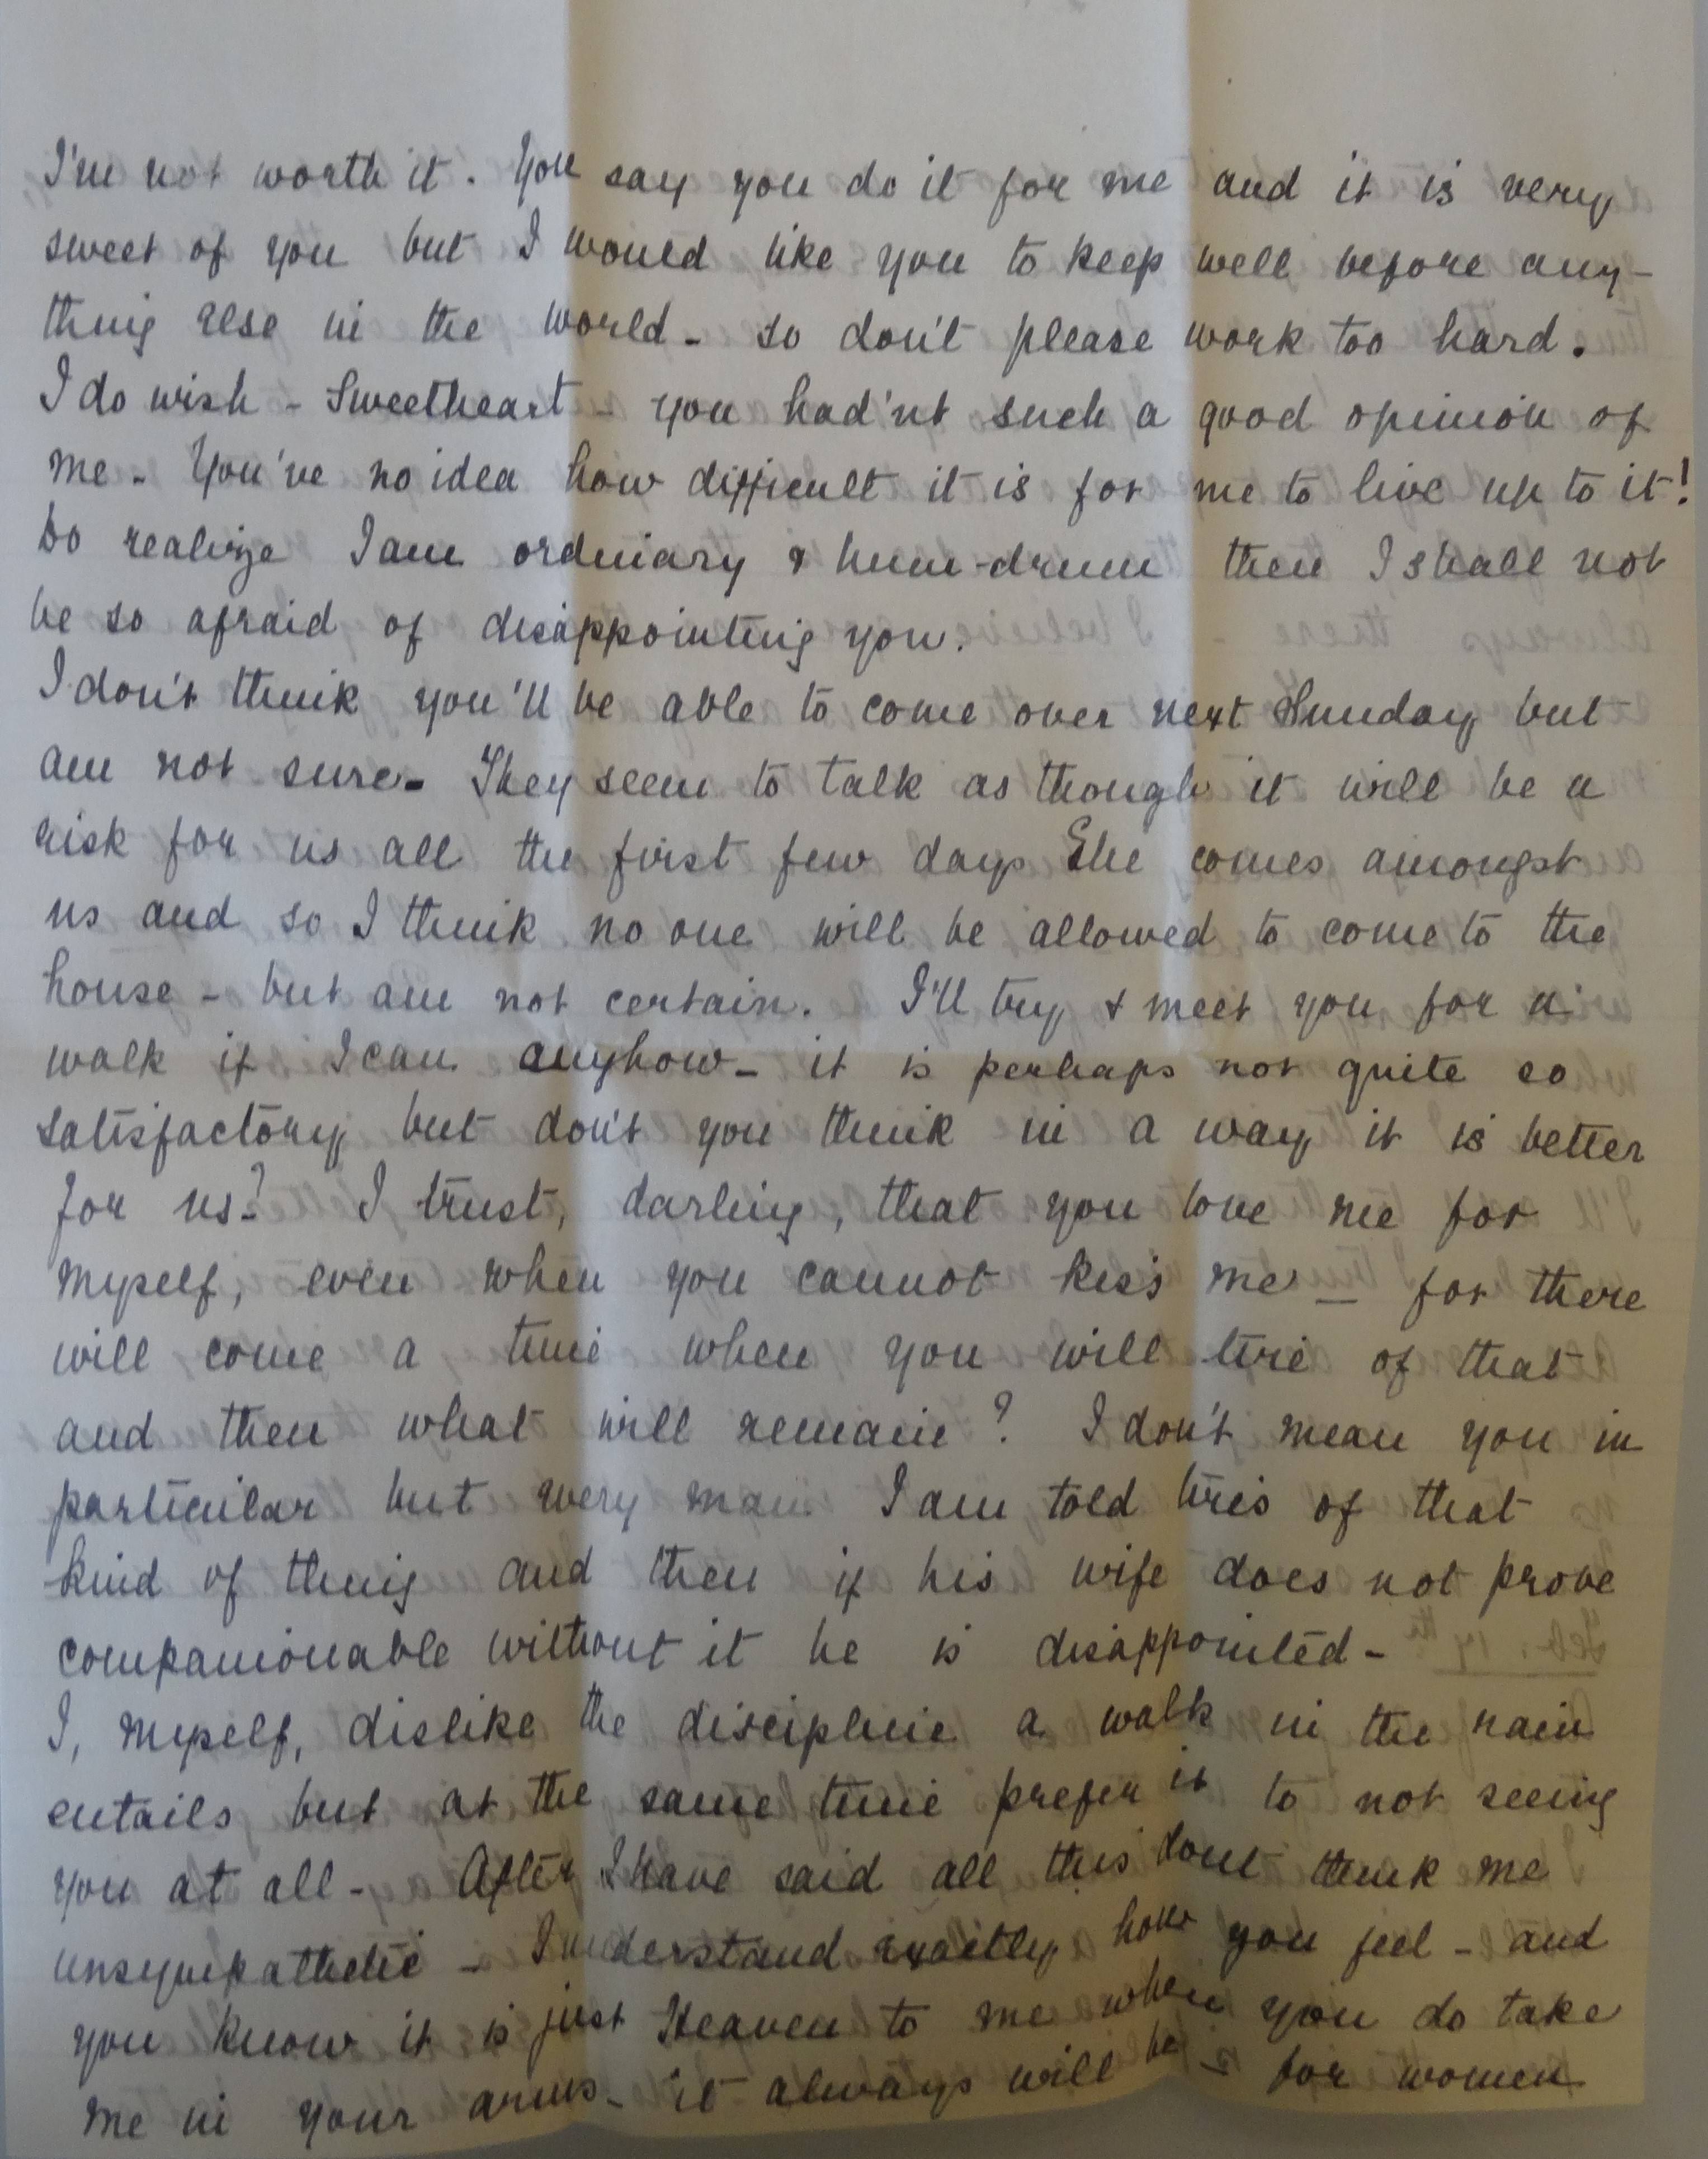 I'm not worth it. You say you do it for me and it is very
sweet of you but I would like you to keep well before any-
thing else in the world - so don't please work too hard.
I do wish - Sweetheart - you had'nt such a good opinion of
me - You've no idea how difficult it is for me to live up to it!
Do realize I am ordinary & hum-drum then I shall not
be so afraid of disappointing you.
I don't think you'll be able to come over next Sunday but
am not sure - They seem to talk as though it will be a
risk for us all the first few days She comes amongst
us and so I think no one will be allowed to come to the
house - but am not certain. I'll try & meet you for a
walk if I can anyhow - it is perhaps not quite so
satisfactory but don't you think in a way it is better
for us? I trust, darling, that you love me for
myself, even when you cannot kiss me - for there
will come a time when you will tire of that
and then what will remain? I don't mean you in
particular but every man I am told tires of that
kind of thing and then if his wife does not prove
companionable without it he is disappointed -
I, myself, dislike the discipline a walk in the rain
entails but at the same time prefer it to not seeing
you at all - After I have said all this dont think me
unsympathetic - I understand exactly how you feel - and
you know it is just Heaven to me when you do take
me in your arms - it always will be - for women